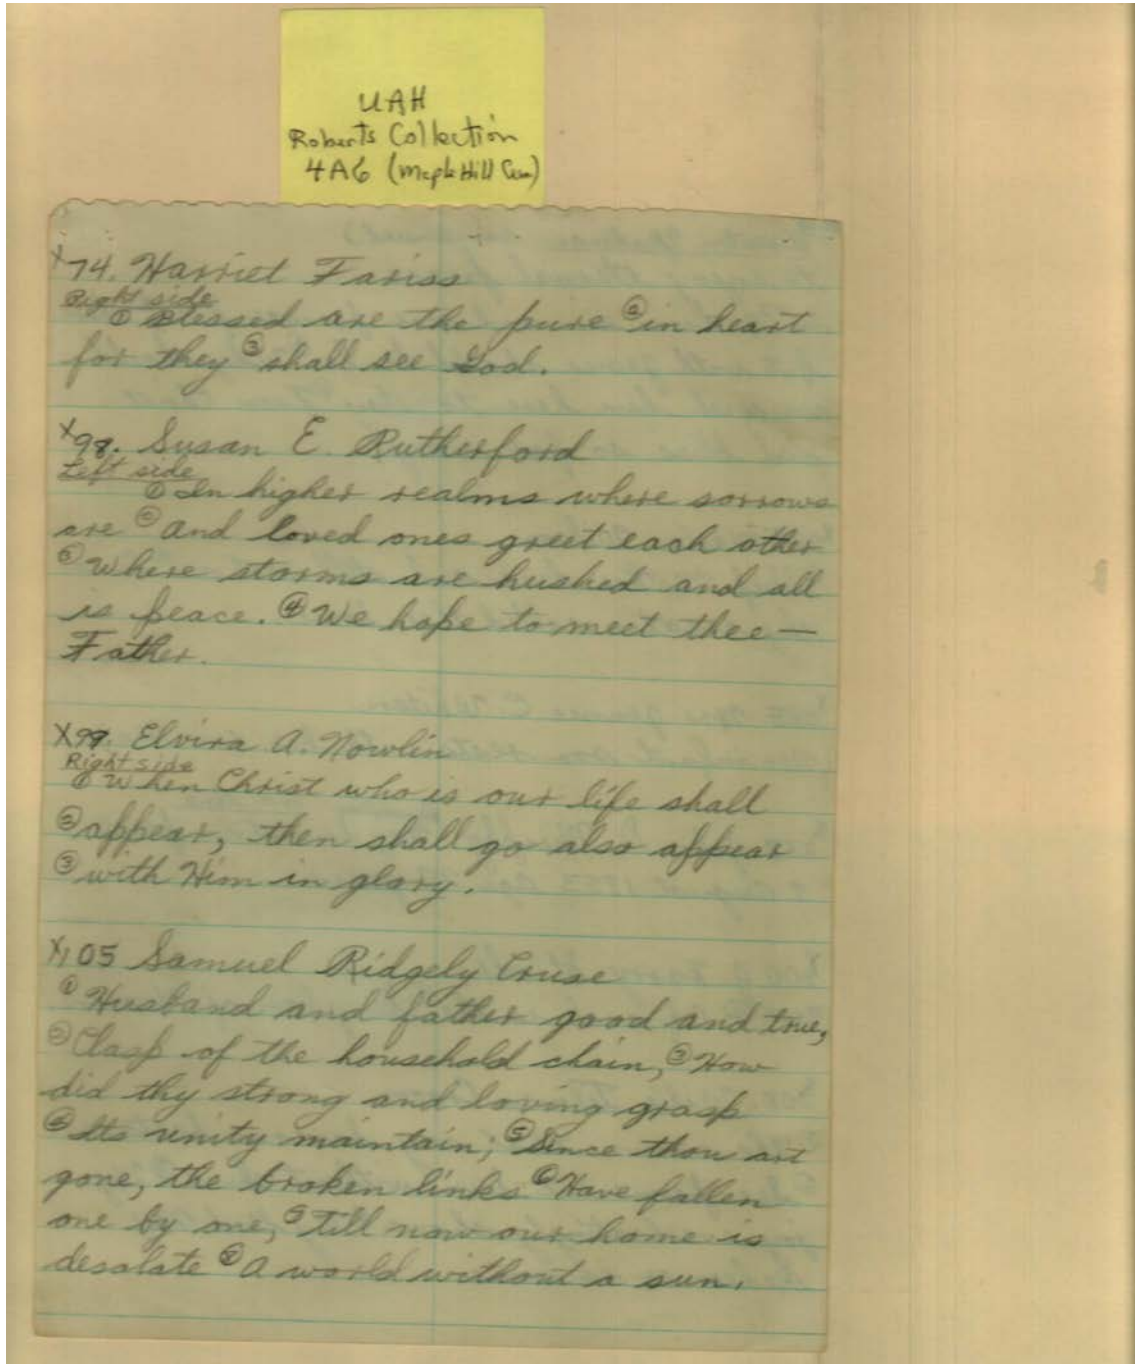 UAH
Roberts Collection
4A6 (Maple Hill Cem)
X74. Harriet Fariss
Right side
① Blessed are the pure ② in heart
for they ③ shall see God.
X98. Susan E. Rutherford
Left side
① In higher realms where sorrows
are ② and loved ones greet each other
③ Where storms are hushed and all
is peace. ④ We hope to meet thee —
Father.
X99. Elvira A. Nowlin
Right side
① When Christ who is our life shall
② appear, then shall go also appear
③ with Him in glory.
X105 Samuel Ridgely Cruse
① Husband and father good and true,
② Clasp of the household chain, ③ How
did thy strong and loving grasp
④ Its unity maintain; ⑤ Since thou art
gone, the broken links ⑥ Have fallen
one by one, ⑦ Till now our home is
desolate ⑧ A world without a sun.